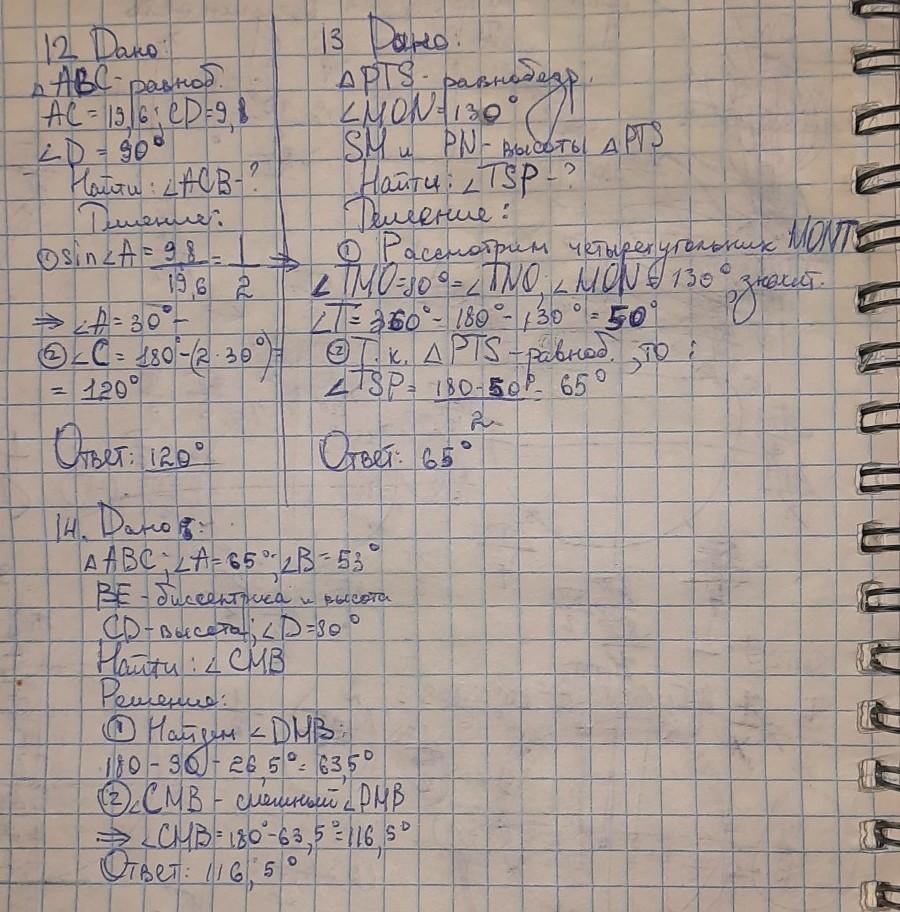 12 Дано:
△ABC - равноб.
AC = 19,6; CD = 9,8
∠D = 90°
Найти: ∠ACB - ?
Решение:
① sin∠A = 9,8/19,6 = 1/2 ⇒
⇒ ∠A = 30°
② ∠C = 180° - (2·30°) =
= 120°
Ответ: 120°
13 Дано:
△PTS - равнобедр.
∠MON = 130°
SM и PN - высоты △PTS
Найти: ∠TSP - ?
Решение:
① Рассмотрим четырехугольник MONT
∠TMO = 90° = ∠TNO; ∠MON = 130° значит.
∠T = 360° - 180° - 130° = 50°
② Т.к. △PTS - равноб., то:
∠TSP = 180-50°/2 = 65°
Ответ: 65°
14. Дано:
△ABC; ∠A = 65°; ∠B = 53°
BE - биссектриса и высота
CD - высота; ∠D = 90°
Найти: ∠CMB
Решение:
① Найдем ∠DMB:
180 - 90 - 26,5° = 63,5°
② ∠CMB - смежный ∠DMB
⇒ ∠CMB = 180° - 63,5° = 116,5°
Ответ: 116,5°